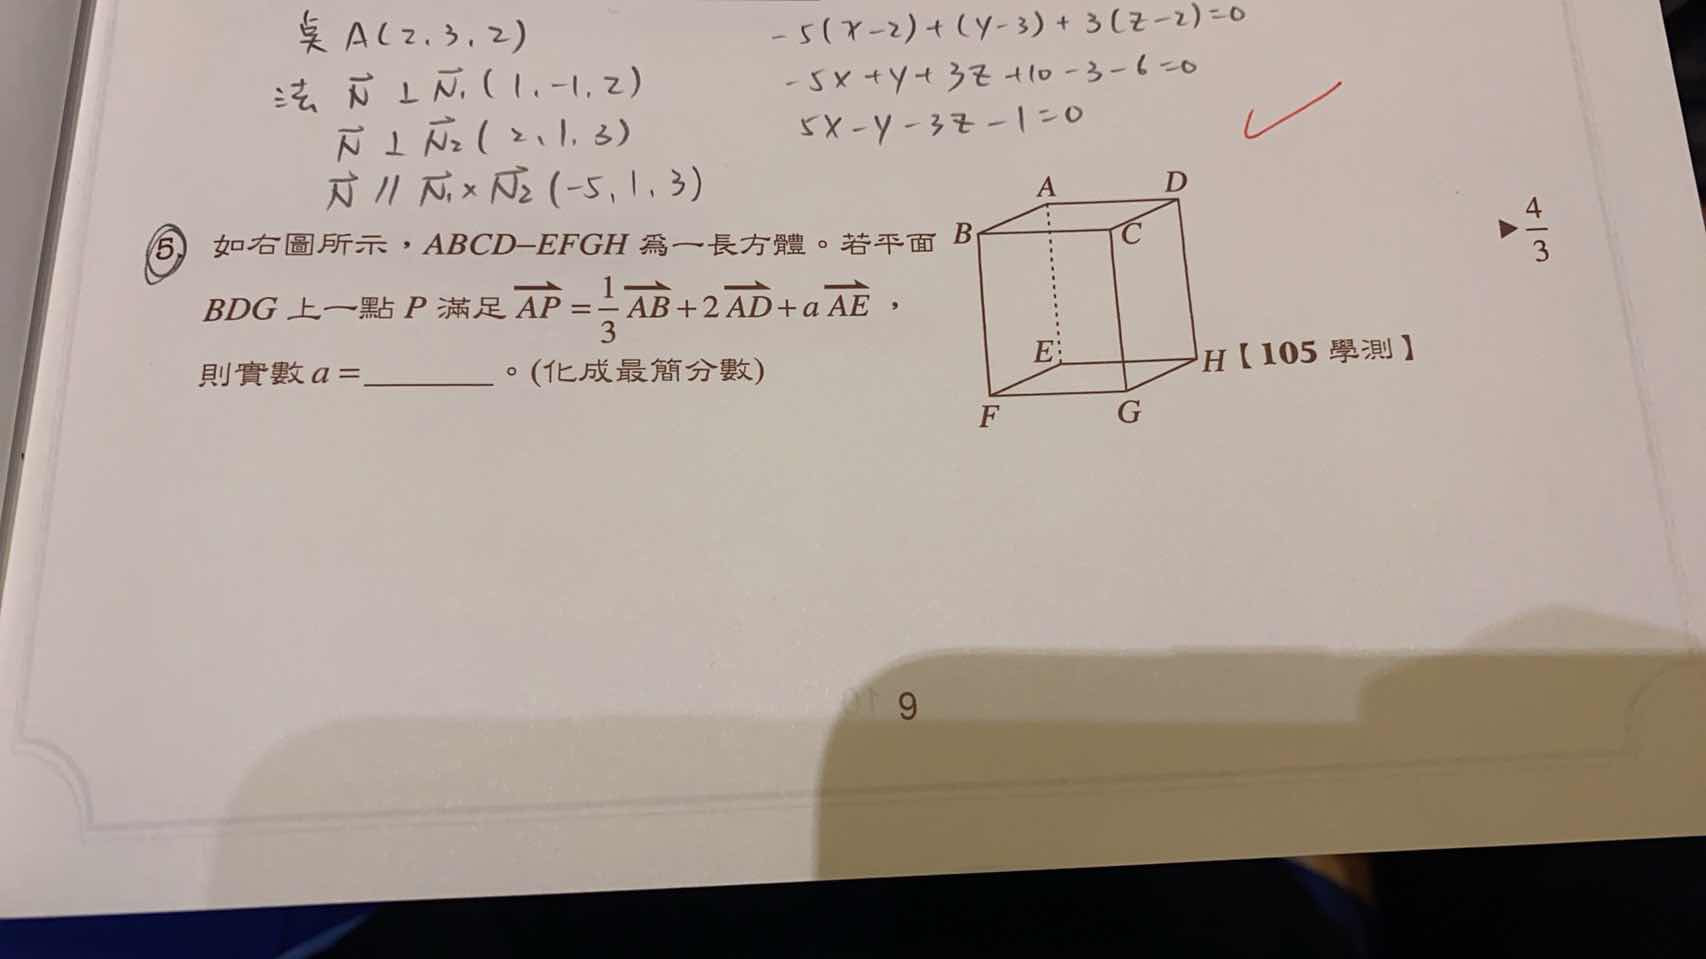 点 A(2,3,2)
法 N⃗ ⊥ N⃗₁(1,-1,2)
N⃗ ⊥ N⃗₂(2,1,3)
N⃗ // N⃗₁×N⃗₂(-5,1,3)
-5(x-2)+(y-3)+3(z-2)=0
-5x+y+3z+10-3-6=0
5x-y-3z-1=0
5. 如右圖所示，ABCD–EFGH 為一長方體。若平面
BDG 上一點 P 滿足 \overrightarrow{AP}=\frac{1}{3}\overrightarrow{AB}+2\overrightarrow{AD}+a\overrightarrow{AE}，
則實數 a=______。(化成最簡分數)
A D
B C
E H
F G
【105 學測】
▶\frac{4}{3}
9